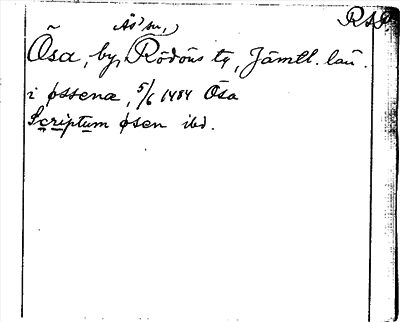 Ås'su,) RAÄ
Õsa, by, Rödöns tg, Jämtl. län.
i øssenæ, 5/6 1484 Ösa
Scriptum øsen ibd.